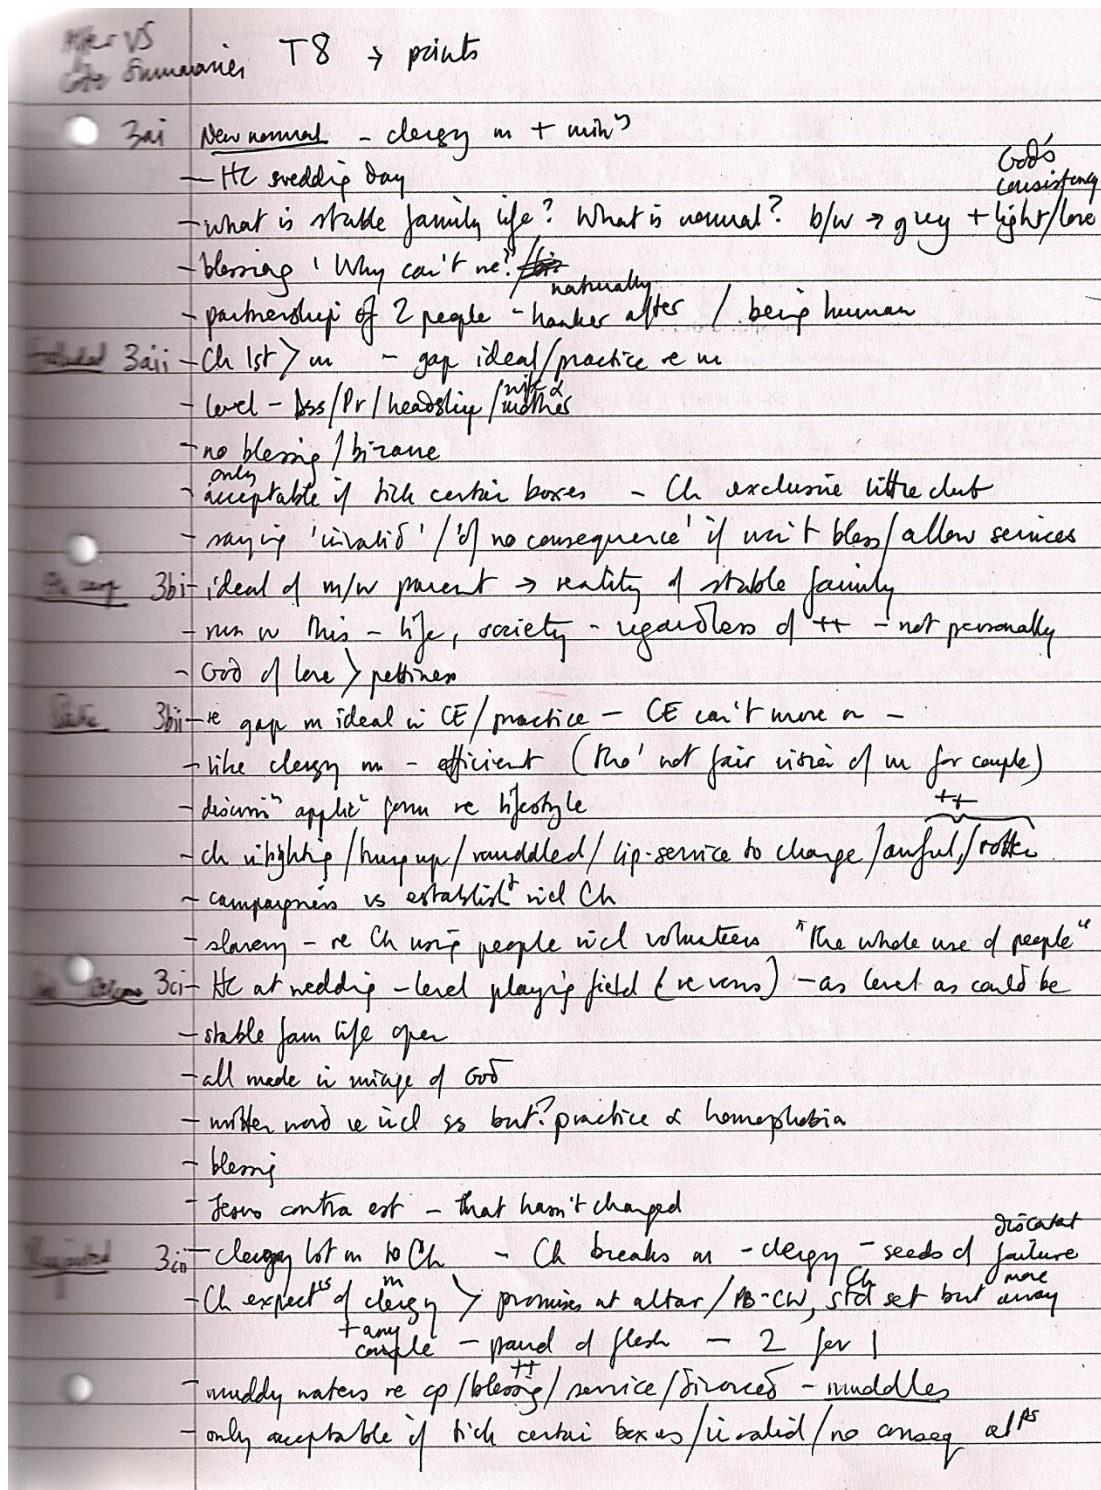 After VS
Summaries T8 → points
3ai New normal - clergy m + minʸ
God's
consistency
- HC wedding day
- what is stable family life? What is normal? b/w → grey + light/love
- blessing 'Why can't we?'/
naturally
- partnership of 2 people - hanker after / being human
3aii - Ch 1st > m - gap ideal/practice re m
wife &
- level - Dss/Pr/headship/mother
- no blessing / bizarre
only
- acceptable if tick certain boxes - Ch exclusive little club
- saying 'invalid' / 'of no consequence' if won't bless/allow services
3bi - ideal of m/w parent → reality of stable family
- run w this - life, society - regardless of ++ - not personally
- God of love > pettiness
3bii - re gap m ideal in CE/practice - CE can't move on -
- like clergy m - efficient (tho' not fair vision of m for couple)
- discrimⁿ applicⁿ form re lifestyle
++
- ch infighting / hung up / muddled / lip-service to change / awful / rotten
- campaigners vs establishᵗ incl Ch
- slavery - re Ch using people incl volunteers "the whole use of people"
3ci - HC at wedding - level playing field (re vows) - as level as could be
- stable fam life open
- all made in image of God
- written word re incl ss but? practice & homophobia
- blessing
- Jesus contra est - that hasn't changed
discontent
3cii - clergy lot m to Ch - Ch breaks m - clergy - seeds of failure
m Ch more
- Ch expectⁿˢ of clergy > promises at altar / PB-CW, std set but away
+ any
couple - pound of flesh - 2 for 1
++
- muddy waters re cp/blessing / service / divorced - muddles
- only acceptable if tick certain boxes / invalid / no conseq